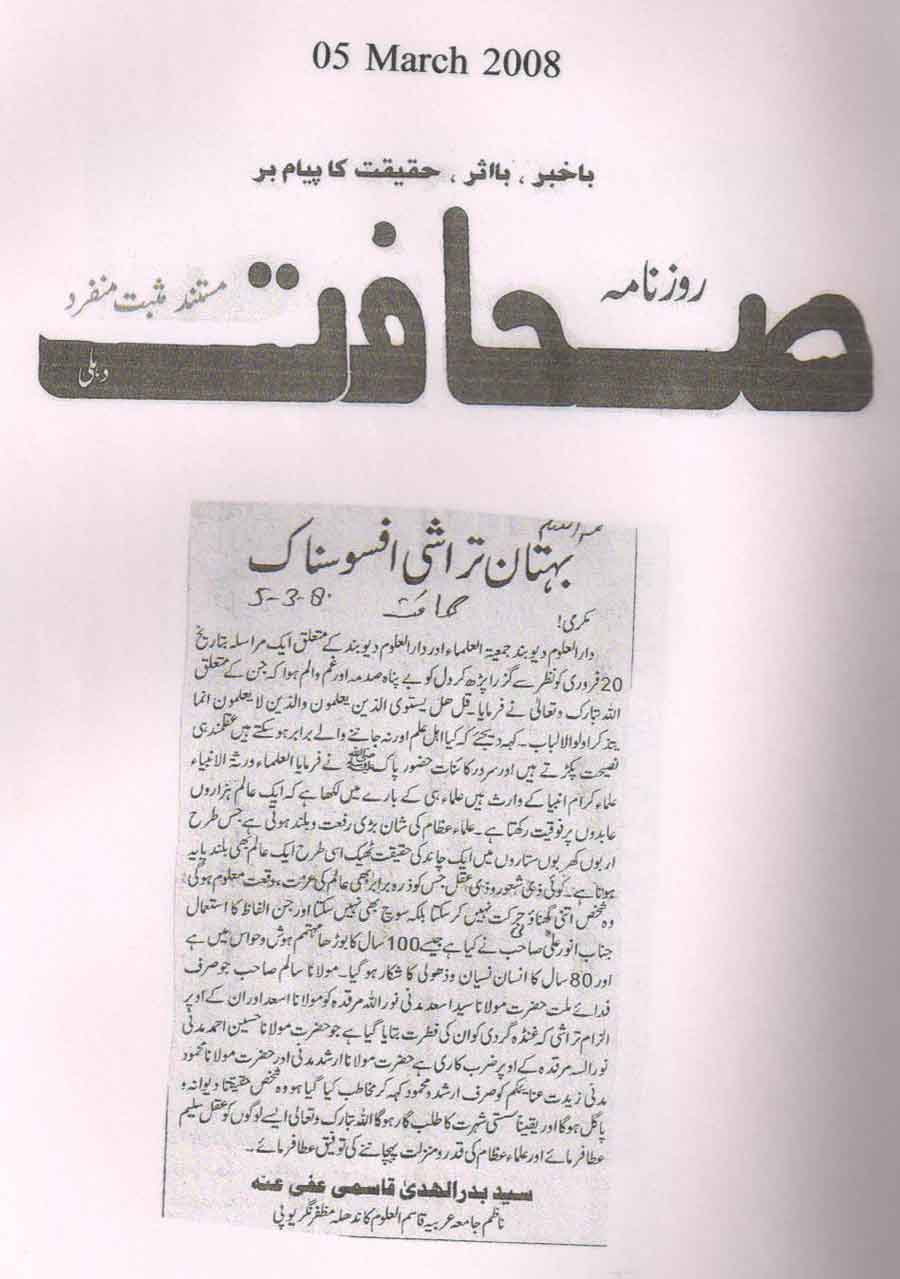 05 March 2008
باخبر، بااثر، حقیقت کا پیام بر
روزنامہ
صحافت
مستند مثبت منفرد
دہلی
بہتان تراشی افسوسناک
5-3-8
صحافت
مکرمی!
دارالعلوم دیوبند جمعیۃ العلماء اور دارالعلوم دیوبند کے متعلق ایک مراسلہ بتاریخ
20 فروری کو نظر سے گزرا پڑھ کر دل کو بے پناہ صدمہ اور غم والم ہوا کہ جن کے متعلق
اللہ تبارک وتعالیٰ نے فرمایا۔ قل ھل یستوی الذین یعلمون والذین لا یعلمون انما
یتذکر اولوالالباب۔ کہہ دیجئے کہ کیا اہل علم اور نہ جاننے والے برابر ہوسکتے ہیں عقلمند ہی
نصیحت پکڑتے ہیں اور سرور کائنات حضور پاک ﷺ نے فرمایا العلماء ورثۃ الانبیاء
علماء کرام انبیا کے وارث ہیں علماء ہی کے بارے میں لکھا ہے کہ ایک عالم ہزاروں
عابدوں پر فوقیت رکھتا ہے۔ علماء عظام کی شان بڑی رفعت وبلند ہوتی ہے جس طرح
اربوں کھربوں ستاروں میں ایک چاند کی حقیقت ٹھیک اسی طرح ایک عالم بھی بلند پایہ
ہوتا ہے۔ کوئی ذی شعور وذی عقل جس کو ذرہ برابر بھی عالم کی عزت، وقعت معلوم ہوگی
وہ شخص اتنی گھناؤنی حرکت نہیں کرسکتا بلکہ سوچ بھی نہیں سکتا اور جن الفاظ کا استعمال
جناب انور علی صاحب نے کیا ہے جیسے 100 سال کا بوڑھا مہتمم ہوش وحواس میں ہے
اور 80 سال کا انسان نسیان وذھولی کا شکار ہوگیا۔ مولانا سالم صاحب جو صرف
فدائے ملت حضرت مولانا سید اسعد مدنی نور اللہ مرقدہ کو مولانا اسعد اور ان کے اوپر
الزام تراشی کہ غنڈہ گردی کو ان کی فطرت بتایا گیا ہے جو حضرت مولانا حسین احمد مدنی
نور اللہ مرقدہ کے اوپر ضرب کاری ہے حضرت مولانا ارشد مدنی اور حضرت مولانا محمود
مدنی زیدت عنایتکم کو صرف ارشد ومحمود کہہ کر مخاطب کیا گیا ہو وہ شخص حقیقتاً دیوانہ و
پاگل ہوگا اور یقیناً سستی شہرت کا طلب گار ہوگا اللہ تبارک وتعالیٰ ایسے لوگوں کو عقل سلیم
عطا فرمائے اور علماء عظام کی قدر ومنزلت پہچاننے کی توفیق عطا فرمائے۔
سید بدرالھدیٰ قاسمی عفی عنہ
ناظم جامعہ عربیہ قاسم العلوم کاندھلہ مظفرنگر یوپی